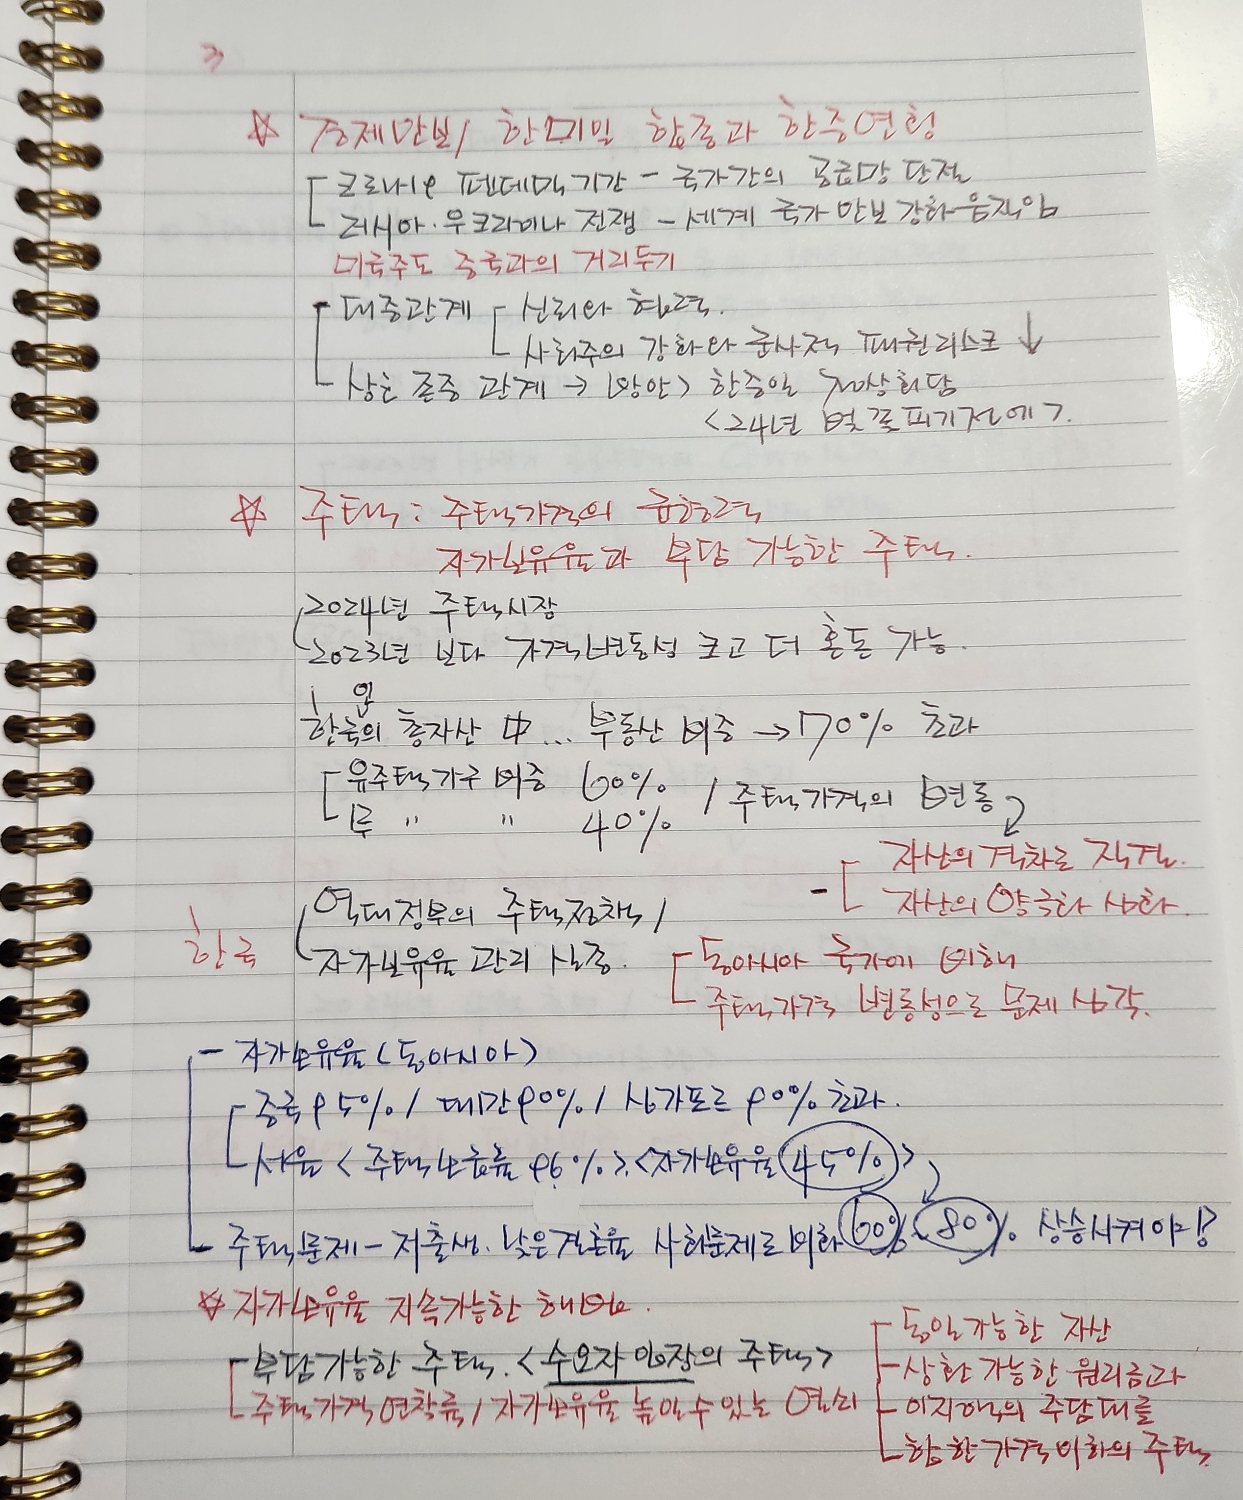 ☆ 경제안보/ 한미일 협종과 한중연형
코로나19 펜데믹기간 - 국가간의 공급망 단절
러시아·우크라이나 전쟁 - 세계 국가 안보 강화 움직임
미국주도 중국과의 거리두기
대중관계 신뢰와 협력.
사회주의 강화와 군사적 패권리스크 ↓
상호 존중 관계 → (방안) 한중일 정상회담
<24년 벚꽃피기전에>.
☆ 주택: 주택가격의 균형력
자가보유율과 부담 가능한 주택.
2024년 주택시장
2023년 보다 가격변동성 크고 더 혼돈 가능.
한국의 총자산 中... 부동산 비중 → 70% 초과
유주택가구 비중 60% / 주택가격의 변동
무 〃 〃 40%
자산의 격차로 직결.
자산의 양극화 심화.
역대정부의 주택정책/
한국 자가보유율 관리 실종.
동아시아 국가에 비해
주택가격 변동성으로 문제 심각.
- 자가보유율 (동아시아)
중국 95% / 대만 90% / 싱가포르 90% 초과.
서울 < 주택보급률 96%>.<자가보유율 45%>
주택문제 - 저출생. 낮은결혼율 사회문제로 비화 60% 80%. 상승시켜야!?
☆ 자가보유율 지속가능한 해법.
부담가능한 주택. <수요자 입장의 주택>
주택가격 연착륙 / 자가보유율 높일수 있는 열쇠
동일가능한 자산
상환 가능한 원리금과
이자액의 주담대를
합한 가격 이하의 주택.